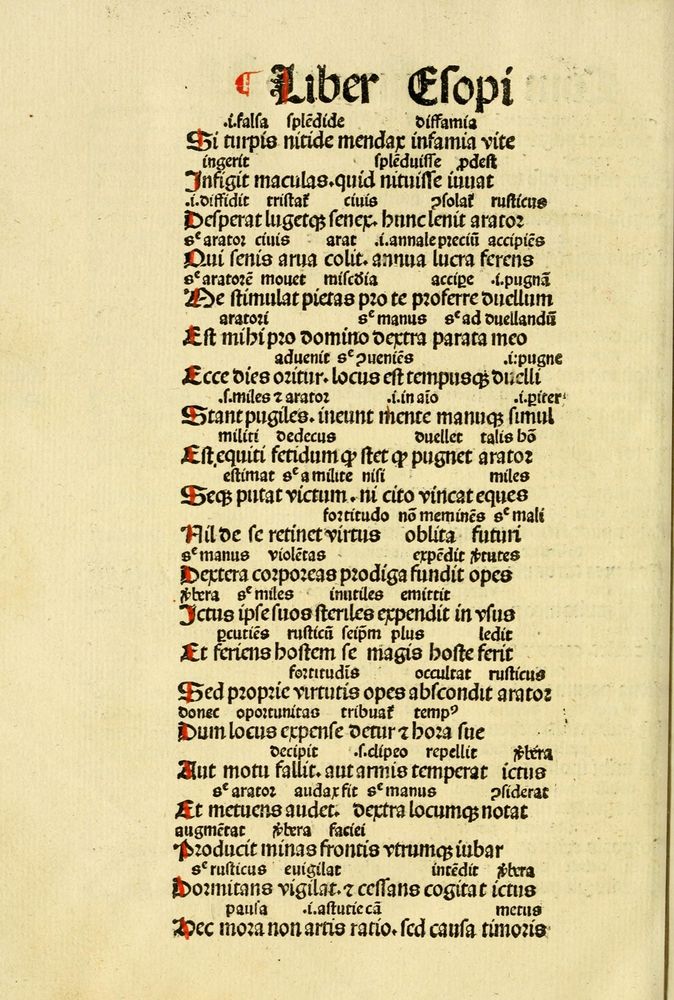 ¶ Liber Esopi
.i.falsa splēdide diffamia
Si turpis nitide mendax infamia vite
ingerit splēduisse ꝓdest
Infigit maculas. quid nituisse iuuat
.i.diffidit tristat᷑ ciuis ꝯsolat᷑ rusticus
Desperat lugetqꝫ senex. hunc lenit arator
sᶜ arator ciuis arat .i.annale preciū accipiēs
Qui senis arua colit. annua lucra ferens
sᶜ aratorē mouet miscd̄ia accipe .i.pugnā
Me stimulat pietas pro te proferre duellum
aratori sᶜ manus sᶜ ad duellandū
Est mihi pro domino dextra parata meo
aduenit sᶜ ꝯueniēs .i.pugne
Ecce dies oritur. locus est tempusqꝫ duelli
.s.miles ⁊ arator .i.in aīo .i.ꝑiter
Stant pugiles. ineunt mente manuqꝫ simul
militi dedecus duellet talis hō
Est equiti fetidum ꝙ stet ꝙ pugnet arator
estimat sᶜ a milite nisi miles
Seqꝫ putat victum. ni cito vincat eques
fortitudo nō meminēs sᶜ mali
Nil de se retinet virtus oblita futuri
sᶜ manus violētas expēdit v̄tutes
Dextera corporeas prodiga fundit opes
v̄bera sᶜ miles inutiles emittit
Ictus ipse suos steriles expendit in vsus
ꝑcutiēs rusticū seip̄m plus ledit
Et feriens hostem se magis hoste ferit
fortitudīs occultat rusticus
Sed proprie virtutis opes abscondit arator
donec oportunitas tribuat᷑ tempꝰ
Dum locus expense detur ⁊ hora sue
decipit .s.clipeo repellit v̄bera
Aut motu fallit. aut armis temperat ictus
sᶜ arator audax fit sᶜ manus ꝯsiderat
Et metuens audet. dextra locumqꝫ notat
augmētat v̄bera faciei
Producit minas frontis vtrumqꝫ iubar
sᶜ rusticus euigilat intēdit v̄bera
Dormitans vigilat. ⁊ cessans cogitat ictus
pausa .i.astutie cā metus
Nec mora non artis ratio. sed causa timoris